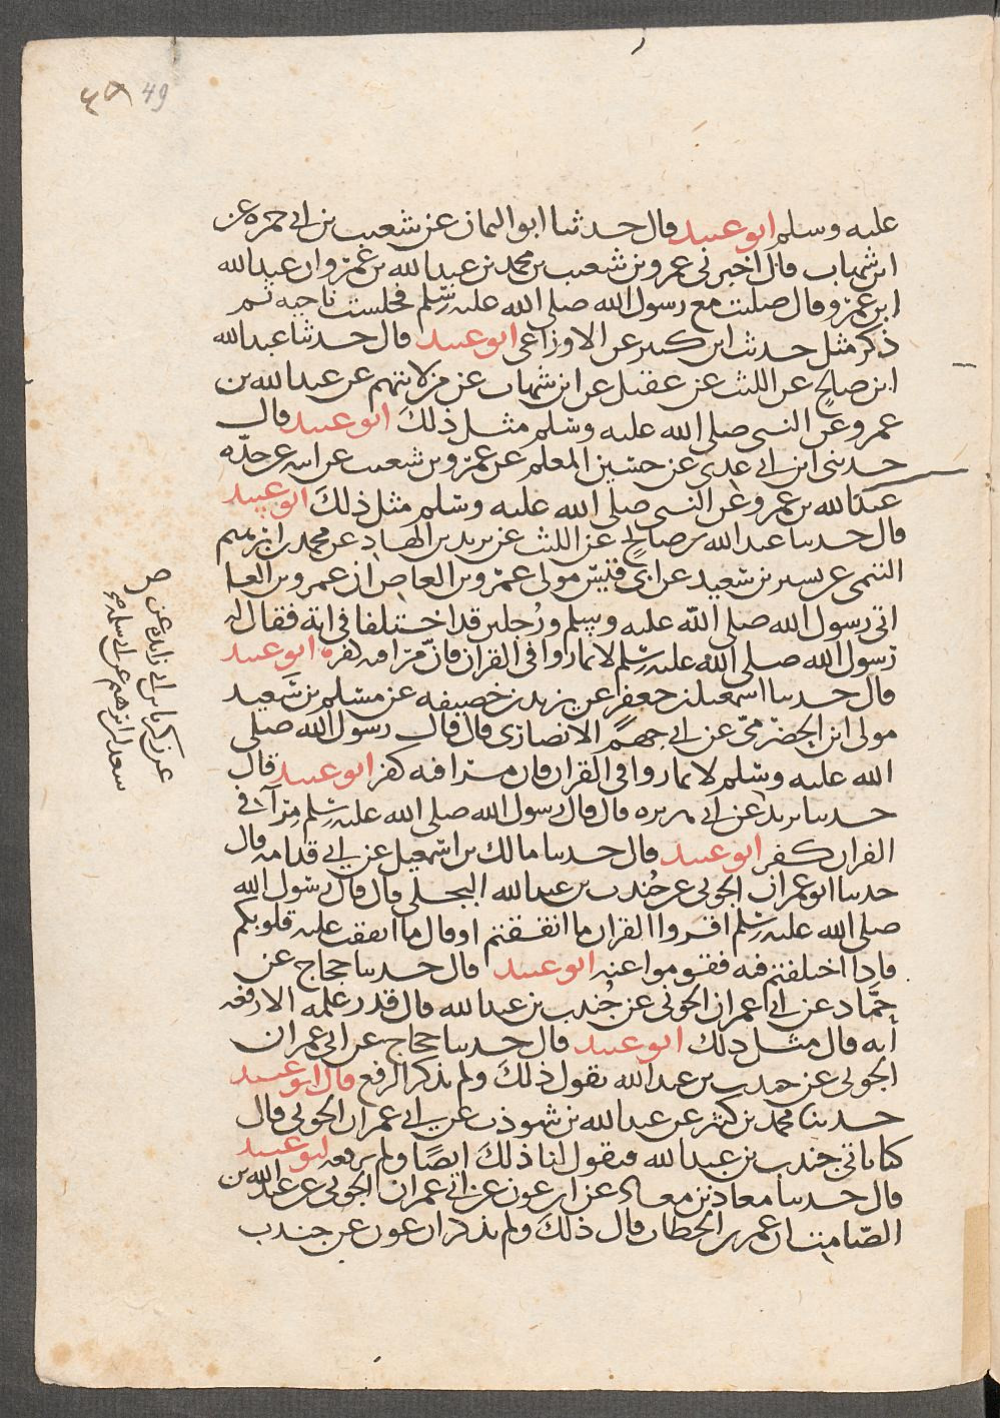 ٤٩ 49
عليه وسلم ابو عبيد قال حدثنا ابو اليمان عن شعيب بن ابي حمزه عن
ابن شهاب قال اخبرني عمرو بن شعيب بن محمد بن عبد الله بن عمرو ان عبد الله
ابن عمرو قال صليت مع رسول الله صلى الله عليه وسلم فجلست ناحيه ثم
ذكر مثل حديث ابن كثير عن الاوزاعي ابو عبيد قال حدثنا عبد الله
ابن صالح عن الليث عن عقيل عن ابن شهاب عن من لا يتهم عن عبد الله بن
عمرو عن النبي صلى الله عليه وسلم مثل ذلك ابو عبيد قال
حدثني ابن ابي عدي عن حسين المعلم عن عمرو بن شعيب عن ابيه عن جده
عبد الله بن عمرو عن النبي صلى الله عليه وسلم مثل ذلك ابو عبيد
قال حدثنا عبد الله بن صالح عن الليث عن يزيد بن الهاد عن محمد بن ابرهيم
التيمي عن بسر بن سعيد عن ابي قيس مولى عمرو بن العاص ان عمرو بن العا
اتى رسول الله صلى الله عليه وسلم ورجلين قد اختلفا في اية فقال
رسول الله صلى الله عليه وسلم لا تماروا في القران فان مرا فيه كفر ابو عبيد
قال حدثنا اسمعيل بن جعفر عن يزيد بن خصيفه عن مسلم بن سعيد
مولى ابن الحضرمي عن ابي جهم الانصاري قال قال رسول الله صلى
الله عليه وسلم لا تماروا في القران فان مرا فيه كفر ابو عبيد قال
حدثنا يزيد عن ابي هريره قال قال رسول الله صلى الله عليه وسلم مرآ في
القران كفر ابو عبيد قال حدثنا مالك بن اسمعيل عن ابي قدامه قال
حدثنا ابو عمران الجوني عن جندب بن عبد الله البجلي قال قال رسول الله
صلى الله عليه وسلم اقروا القران ما اتفقتم او قال ما اتفقت عليه قلوبكم
فاذا اختلفتم فيه فقوموا عنه ابو عبيد قال حدثنا حجاج عن
حماد عن ابي عمران الجوني عن جندب بن عبد الله قال قد علمه الا رفعه
انه قال مثل ذلك ابو عبيد قال حدثنا حجاج عن ابي عمران
الجوني عن جندب بن عبد الله يقول ذلك ولم يذكر الرفع قال ابو عبيد
حدثنا محمد بن كثير عن عبد الله بن شوذب عن ابي عمران الجوني قال
كنا ناتي جندب بن عبد الله فيقول لنا ذلك ايضا ولم يرفعه ابو عبيد
قال حدثنا معاذ بن معاذ عن ابن عون عن ابي عمران الجوني عن عبد الله بن
الصامت ان عمر بن الخطاب قال ذلك ولم يذكر ابن عون عن جندب
عن زكريا بن ابي زايده عن
سعد بن ابرهيم عن ابي سلمه